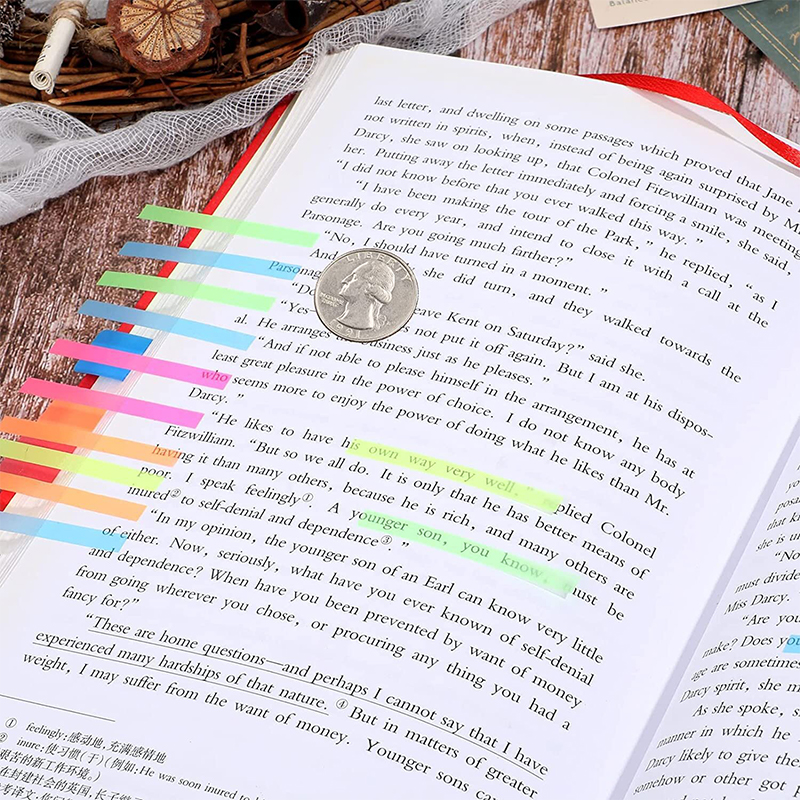 Balance
last letter, and dwelling on some passages which proved that Jane
not written in spirits, when, instead of being again surprised by M
Darcy, she saw on looking up, that Colonel Fitzwilliam was meeting
her. Putting away the letter immediately and forcing a smile, she said,
“I did not know before that you ever walked this way.”
“I have been making the tour of the Park,” he replied, “as I
generally do every year, and intend to close it with a call at the
Parsonage. Are you going much farther?”
“No, I should have turned in a moment.”
And she did turn, and they walked towards the
Parsonag
“D eave Kent on Saturday?” said she.
“Yes— s not put it off again. But I am at his dispos-
al. He arranges business just as he pleases.”
“And if not able to please himself in the arrangement, he has at
least great pleasure in the power of choice. I do not know any body
who seems more to enjoy the power of doing what he likes than Mr.
Darcy.”
“He likes to have his own way very well,” replied Colonel
Fitzwilliam. “But so we all do. It is only that he has better means of
having it than many others, because he is rich, and many others are
poor. I speak feelingly①. A younger son, you know, must be
inured② to self-denial and dependence③.”
“In my opinion, the younger son of an Earl can know very little
of either. Now, seriously, what have you ever known of self-denial
and dependence? When have you been prevented by want of money
from going wherever you chose, or procuring any thing you had a
fancy for?”
“These are home questions—and perhaps I cannot say that I have
experienced many hardships of that nature.④ But in matters of greater
weight, I may suffer from the want of money. Younger sons can
① feelingly:感动地,充满感情地
② inure:使习惯(于)(例如:He was soon inured to
艰苦的新工作环境。)
在封建社会的英国,长子
考译文
LIBERTY
possi
on yo
that k
she is u
“No
must divide
Miss Darcy.
“Are you
make? Does yo
age are sometimes
Darcy spirit, she m
As she spoke, s
manner in which he
Darcy likely to give the
somehow or other got p